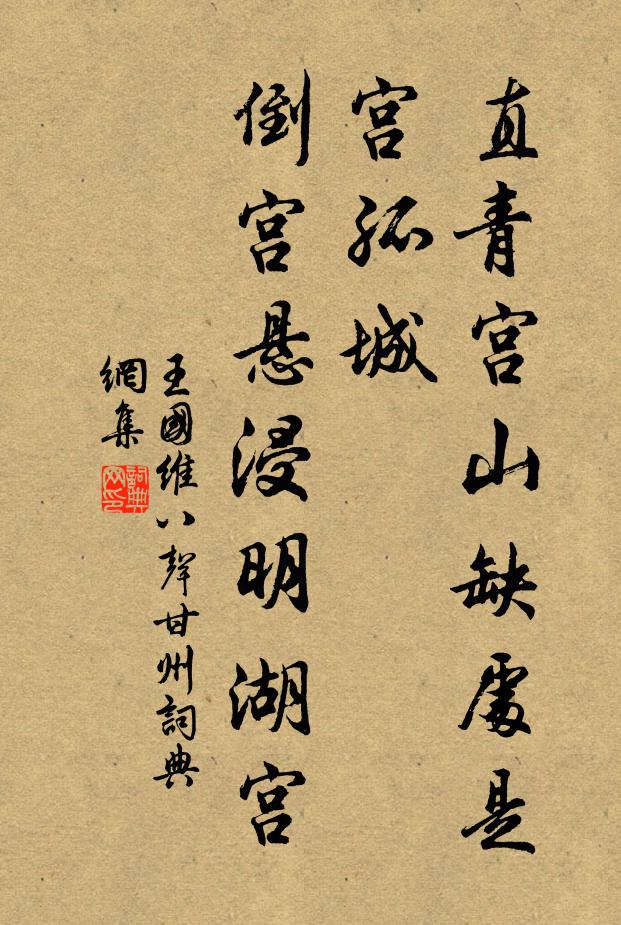 直青宫山缺處是
宫孤城
倒宫悬浸明湖宫
王國維八聲甘州詞典
網集
詞典
网印